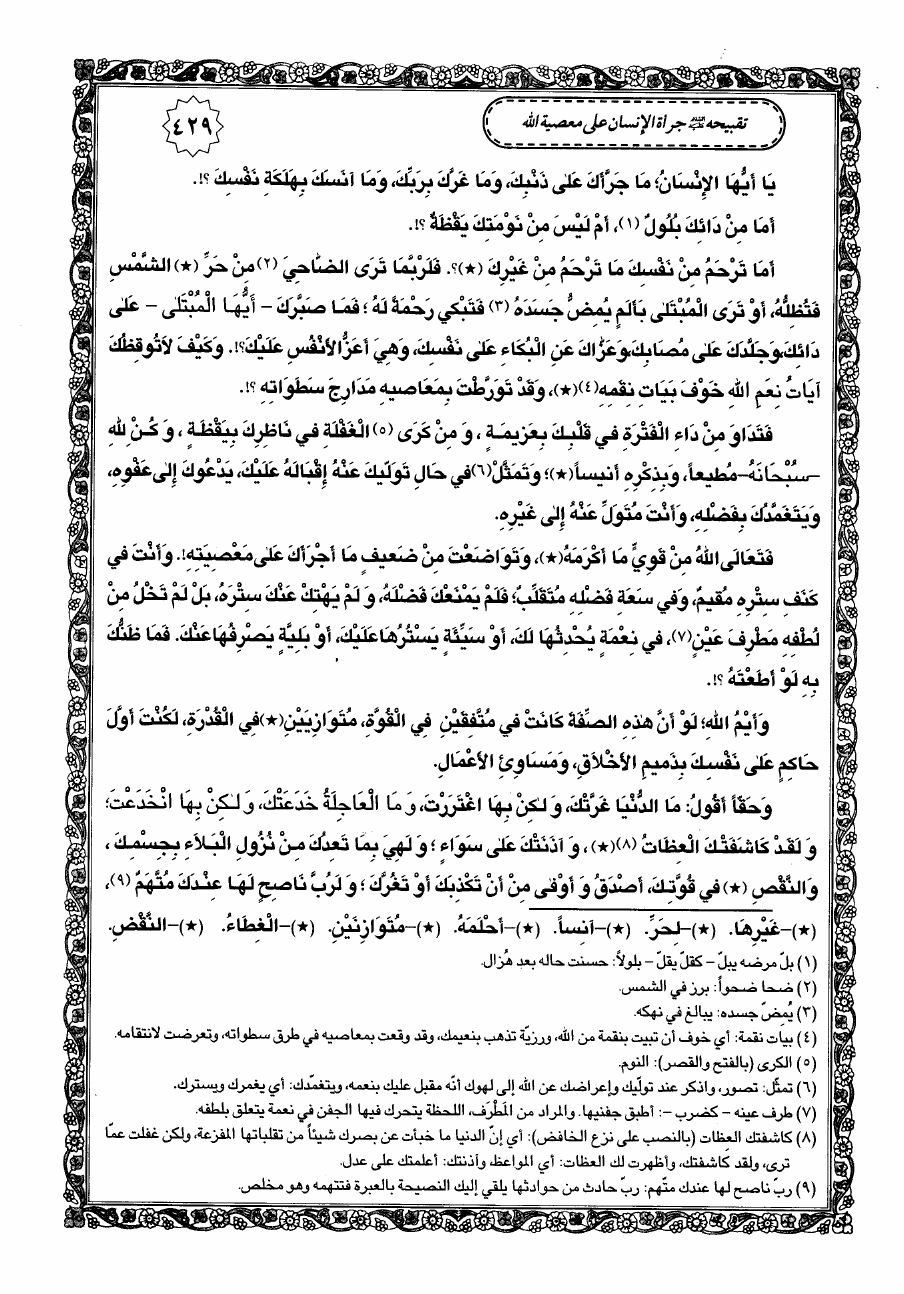 تقبيحه عليه السلام جرأة الإنسان على معصية الله
٤٢٩
يَا أَيُّهَا الإِنْسَانُ؛ مَا جَرَّأَكَ عَلىٰ ذَنْبِكَ، وَمَا غَرَّكَ بِرَبِّكَ، وَمَا آنَسَكَ بِهَلَكَةِ نَفْسِكَ ؟!.
أَمَا مِنْ دَائِكَ بُلُولٌ (١)، أَمْ لَيْسَ مِنْ نَوْمَتِكَ يَقْظَةٌ ؟!.
أَمَا تَرْحَمُ مِنْ نَفْسِكَ مَا تَرْحَمُ مِنْ غَيْرِكَ (★)؟. فَلَرُبَّمَا تَرَى الضَّاحِيَ (٢) مِنْ حَرِّ (★) الشَّمْسِ
فَتُظِلُّهُ، أَوْ تَرَى الْمُبْتَلىٰ بِأَلَمٍ يُمِضُّ جَسَدَهُ (٣) فَتَبْكِي رَحْمَةً لَهُ ؛ فَمَا صَبَّرَكَ – أَيُّهَا الْمُبْتَلىٰ – عَلىٰ
دَائِكَ، وَجَلَّدَكَ عَلىٰ مُصَابِكَ، وَعَزَّاكَ عَنِ الْبُكَاءِ عَلىٰ نَفْسِكَ، وَهِيَ أَعَزُّ الأَنْفُسِ عَلَيْكَ؟!. وَكَيْفَ لاَتُوقِظُكَ
آيَاتُ نِعَمِ اللهِ خَوْفَ بَيَاتِ نِقَمِهِ (٤)(★)، وَقَدْ تَوَرَّطْتَ بِمَعَاصِيهِ مَدَارِجَ سَطَوَاتِهِ ؟!.
فَتَدَاوَ مِنْ دَاءِ الْفَتْرَةِ فِي قَلْبِكَ بِعَزِيمَةٍ ، وَمِنْ كَرَى (٥) الْغَفْلَةِ فِي نَاظِرِكَ بِيَقْظَةٍ ، وَكُنْ للهِ
–سُبْحَانَهُ– مُطِيعاً، وَبِذِكْرِهِ أَنِيساً(★)؛ وَتَمَثَّلْ(٦) فِي حَالِ تَوَلِّيكَ عَنْهُ إِقْبَالَهُ عَلَيْكَ، يَدْعُوكَ إِلىٰ عَفْوِهِ،
وَيَتَغَمَّدُكَ بِفَضْلِهِ، وَأَنْتَ مُتَوَلٍّ عَنْهُ إِلىٰ غَيْرِهِ.
فَتَعَالَى اللهُ مِنْ قَوِيٍّ مَا أَكْرَمَهُ(★)، وَتَوَاضَعْتَ مِنْ ضَعِيفٍ مَا أَجْرَأَكَ عَلىٰ مَعْصِيَتِهِ!. وَأَنْتَ في
كَنَفِ سِتْرِهِ مُقِيمٌ، وَفي سَعَةِ فَضْلِهِ مُتَقَلِّبٌ؛ فَلَمْ يَمْنَعْكَ فَضْلَهُ، وَلَمْ يَهْتِكْ عَنْكَ سِتْرَهُ، بَلْ لَمْ تَخْلُ مِنْ
لُطْفِهِ مَطْرِفَ عَيْنٍ (٧)، فِي نِعْمَةٍ يُحْدِثُهَا لَكَ، أَوْ سَيِّئَةٍ يَسْتُرُهَا عَلَيْكَ، أَوْ بَلِيَّةٍ يَصْرِفُهَا عَنْكَ. فَمَا ظَنُّكَ
بِهِ لَوْ أَطَعْتَهُ ؟!.
وَأَيْمُ اللهِ؛ لَوْ أَنَّ هٰذِهِ الصِّفَةَ كَانَتْ في مُتَّفِقَيْنِ في الْقُوَّةِ، مُتَوَازِيَيْنِ(★) في الْقُدْرَةِ، لَكُنْتَ أَوَّلَ
حَاكِمٍ عَلىٰ نَفْسِكَ بِذَمِيمِ الأَخْلاَقِ، وَمَسَاوِئِ الأَعْمَالِ.
وَحَقّاً أَقُولُ: مَا الدُّنْيَا غَرَّتْكَ، وَلٰكِنْ بِهَا اغْتَرَرْتَ، وَمَا الْعَاجِلَةُ خَدَعَتْكَ، وَلٰكِنْ بِهَا انْخَدَعْتَ؛
وَلَقَدْ كَاشَفَتْكَ الْعِظَاتُ (٨)(★)، وَآذَنَتْكَ عَلىٰ سَوَاءٍ ؛ وَلَهِيَ بِمَا تَعِدُكَ مِنْ نُزُولِ الْبَلاَءِ بِجِسْمِكَ ،
وَالنَّقْصِ (★) فِي قُوَّتِكَ، أَصْدَقُ وَأَوْفىٰ مِنْ أَنْ تَكْذِبَكَ أَوْ تَغُرَّكَ ؛ وَلَرُبَّ نَاصِحٍ لَهَا عِنْدَكَ مُتَّهَمٌ (٩)،
(★)–غَيْرِهَا. (★)–لِحَرِّ. (★)–آنِساً. (★)–أَحْلَمَهُ. (★)–مُتَوَازِنَيْنِ. (★)–الْغِطَاءُ. (★)–النَّقْضِ.
(١) بلّ مرضه يبلّ – كقلّ يقلّ – بلولاً: حسنت حاله بعد هُزال.
(٢) ضحا ضحواً: برز في الشمس.
(٣) يُمِضّ جسده: يبالغ في نهكه.
(٤) بيات نقمة: أي خوف أن تبيت بنقمة من الله، ورزيّة تذهب بنعيمك، وقد وقعت بمعاصيه في طرق سطواته، وتعرضت لانتقامه.
(٥) الكرى (بالفتح والقصر): النوم.
(٦) تمثّل: تصور، واذكر عند تولّيك وإعراضك عن الله إلى لهوك أنّه مقبل عليك بنعمه، ويتغمّدك: أي يغمرك ويسترك.
(٧) طرف عينه – كضرب –: أطبق جفنيها. والمراد من المَطْرَف، اللحظة يتحرك فيها الجفن في نعمة يتعلق بلطفه.
(٨) كاشفتك العظات (بالنصب على نزع الخافض): أي إنّ الدنيا ما خبأت عن بصرك شيئاً من تقلباتها المفزعة، ولكن غفلت عمّا
ترى، ولقد كاشفتك، وأظهرت لك العظات: أي المواعظ، وآذنتك: أعلمتك على عدل.
(٩) ربّ ناصح لها عندك متّهم: ربّ حادث من حوادثها يلقي إليك النصيحة بالعبرة فتتهمه وهو مخلص.